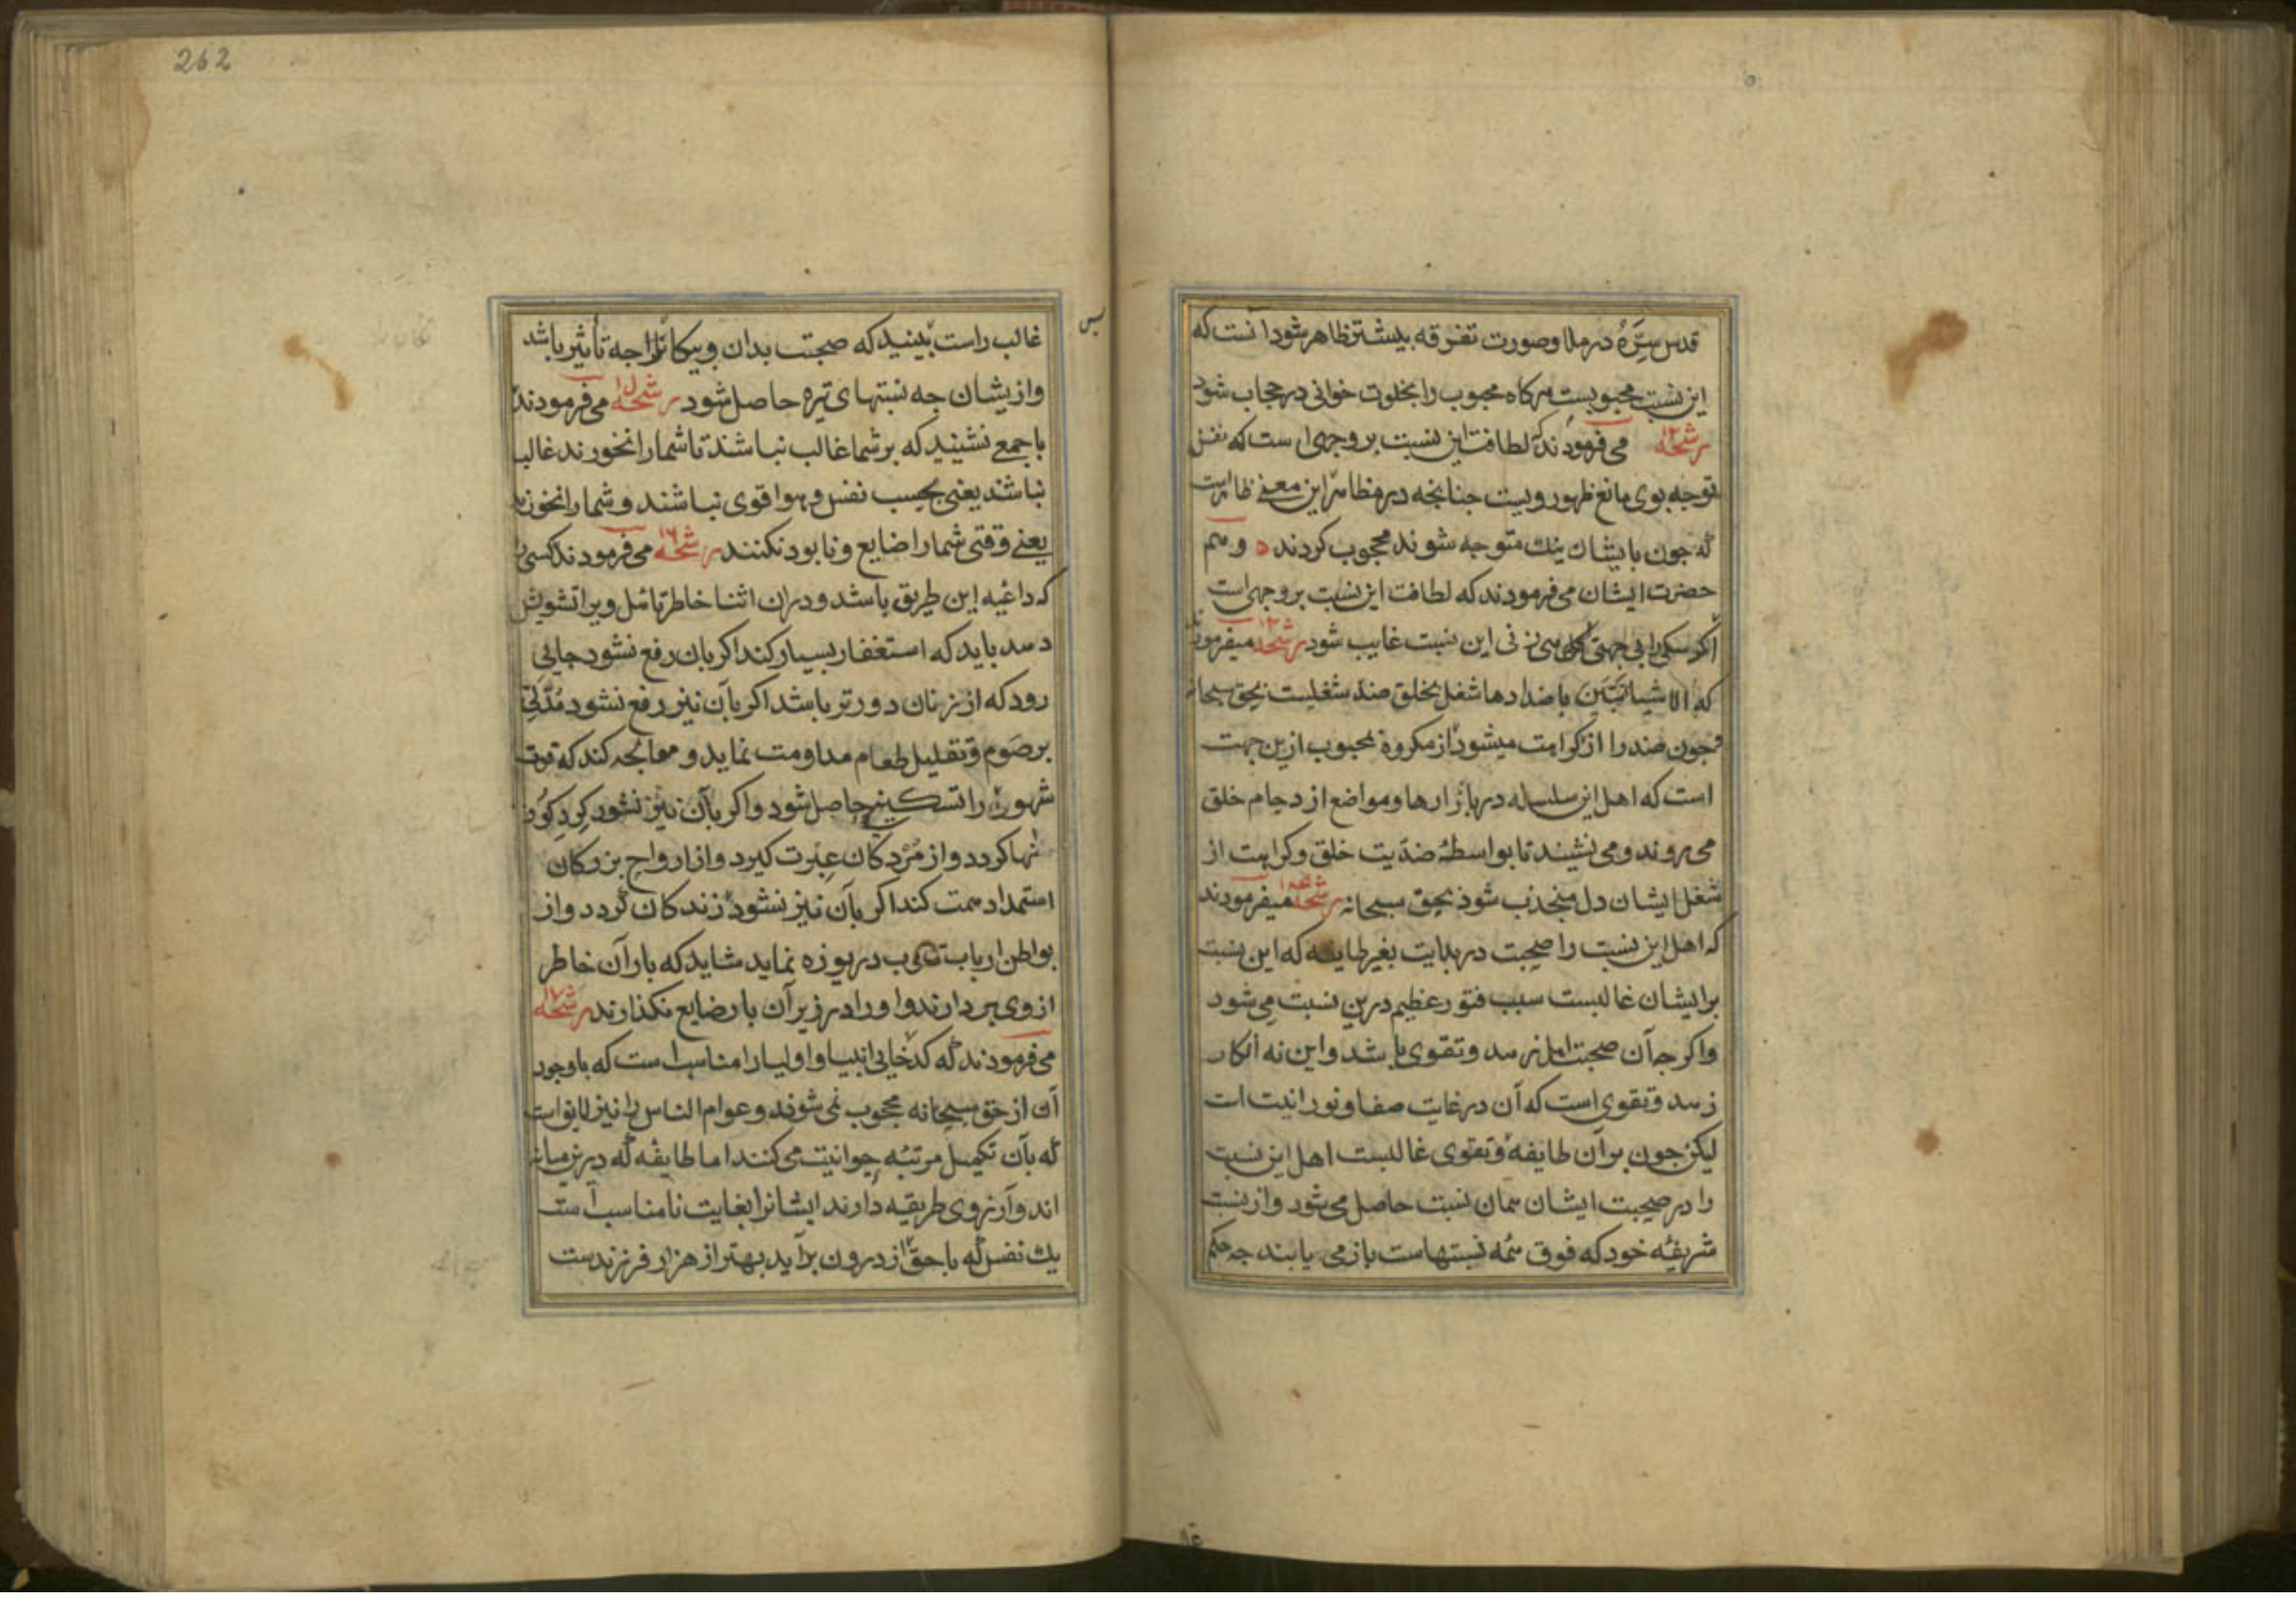 قدس سِرَّهُ در ملا وصورت تفرقه بیشتر ظاهر شود آنست که
این نسبت محبوبیست هرکاه محبوب را بخلوت خوانی در حجاب شود
رشحه ۱۲ می فرمودند که لطافت این نسبت بر وجهی است که نفس
توجه بوی مانع ظهور ویست جنانجه در مظاهر این معنی ظاهرست
که جون بایشان نیك متوجه شوند محجوب کردند ه وهم
حضرت ایشان می فرمودند که لطافت این نسبت بر وجهی است
اکر سکی را بی جهتی این نسبت غایب شود رشحه ۱۳ میفرمودند
که الاشیا تتبیّن باضدادها شغل بخلق ضد شغلیست بحق سبحانه
وجون ضد را از کراهت میشود از مکروه بمحبوب ازین جهت
است که اهل این سلسله در بازارها ومواضع ازدحام خلق
می روند و می نشینند تا بواسطهٔ ضدّیت خلق وکراهت از
شغل ایشان دل منجذب شود بحق سبحانه رشحه ۱۴ میفرمودند
که اهل این نسبت را صحبت در بدایت بغیر طایفه که این نسبت
بر ایشان غالبست سبب فتور عظیم درین نسبت می شود
واکرجه آن صحبت اهل زهد وتقوی باشد واین نه انکار
زهد وتقوی است که آن در غایت صفا ونورانیت است
لیکن جون بر آن طایفه وتقوی غالبست اهل این نسبت
را در صحبت ایشان همان نسبت حاصل می شود واز نسبت
شریفهٔ خود که فوق همه نسبتهاست باز می یابند جه حکم
262
غالب راست ببینید که صحبت بدان وبیکانرا جه تأثیر باشد
وازیشان جه نسبتهای تیره حاصل شود رشحه ۱۵ می فرمودند
با جمعی نشینید که بر شما غالب نباشند تا شما را نخورند غالب
نباشند یعنی بحسب نفس وهوا قوی نباشند وشما را نخورند
یعنی وقتی شما را ضایع ونابود نکنند رشحه ۱۶ می فرمودند کسی را
که داعیه این طریق باشد ودران اثنا خاطر تاهل ویرا تشویش
دهد باید که استغفار بسیار کند اکر بان رفع نشود جایی
رود که از زنان دورتر باشد اکر بآن نیز رفع نشود مُدّتی
بر صَوم وتقلیل طعام مداومت نماید و معالجه کند که قوت
شهوت را تسکینی حاصل شود واکر بآن نیز نشود کِردِ کورستا
نها کردد واز مُردکان عِبرت کیرد واز ارواح بزرکان
استمداد همت کند اکر بآن نیز نشود زندکان کردد واز
بواطن ارباب قلوب دریوزه نماید شاید که بار آن خاطر
از وی بردارند واورا در زیر آن بار ضایع نکذارند رشحه ۱۷
می فرمودند که کدخایی انبیا واولیا را مناسب است که باوجود
آن از حق سبحانه محجوب نمی شوند وعوام الناس را نیز لایق است
که بآن تکمیل مرتبهٔ حیوانیت می کنند اما طایفه که درین میانه
اند وآرزوی طریقه دارند ایشانرا بغایت نامناسب است
یك نفس که با حق از درون برآید بهتر از هزار فرزندست